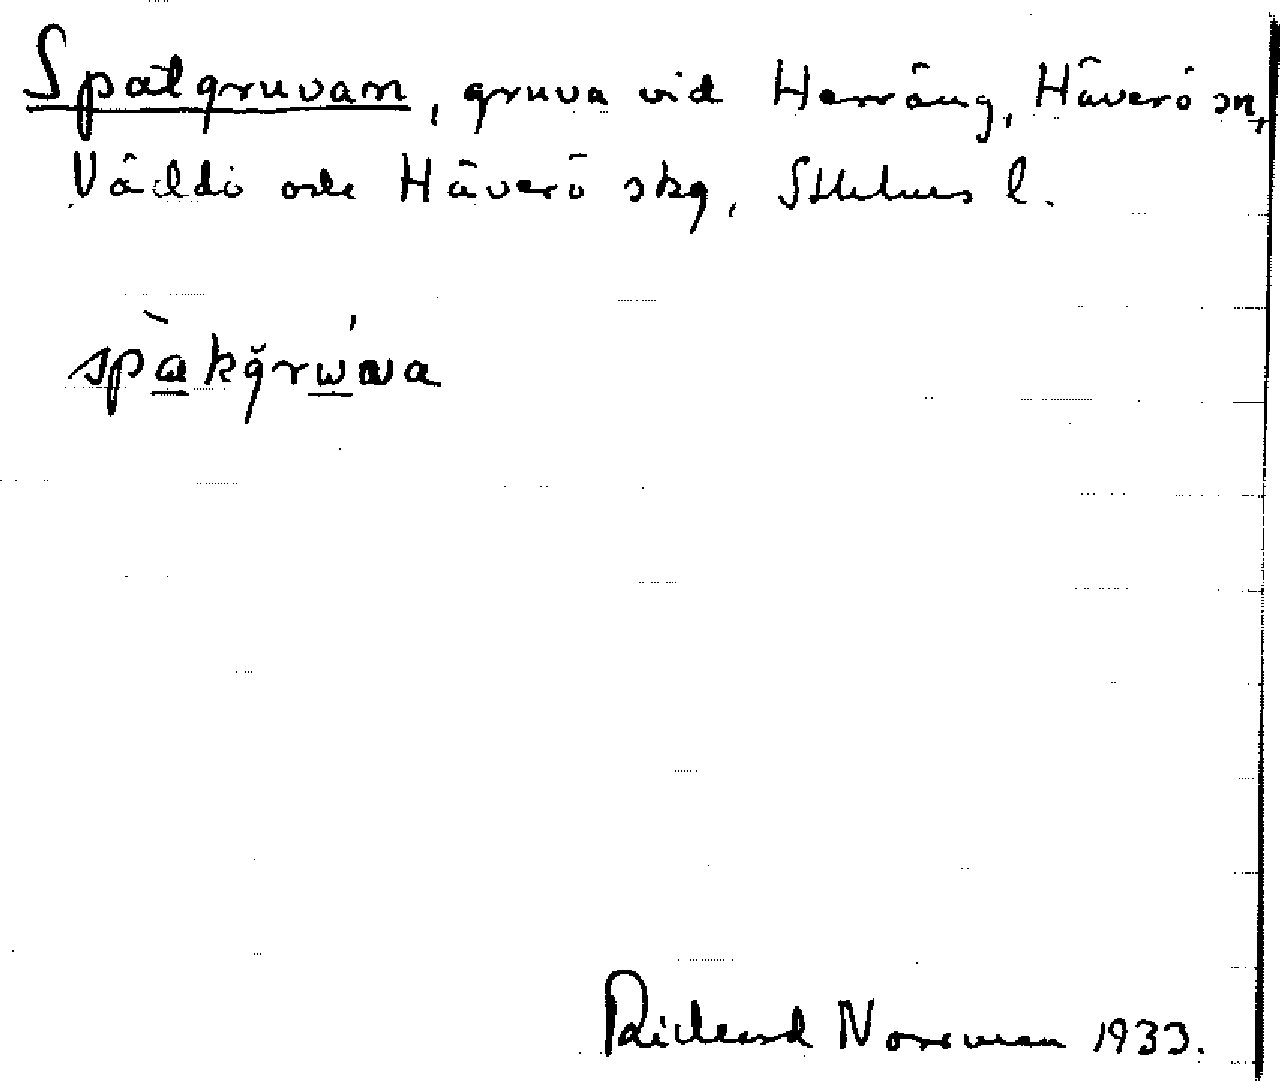 Spatgruvan, gruva vid Herräng, Häverö sn,
Väddö och Häverö skg, Sthlms l.
spàkgrùva
Richard Noreman 1933.